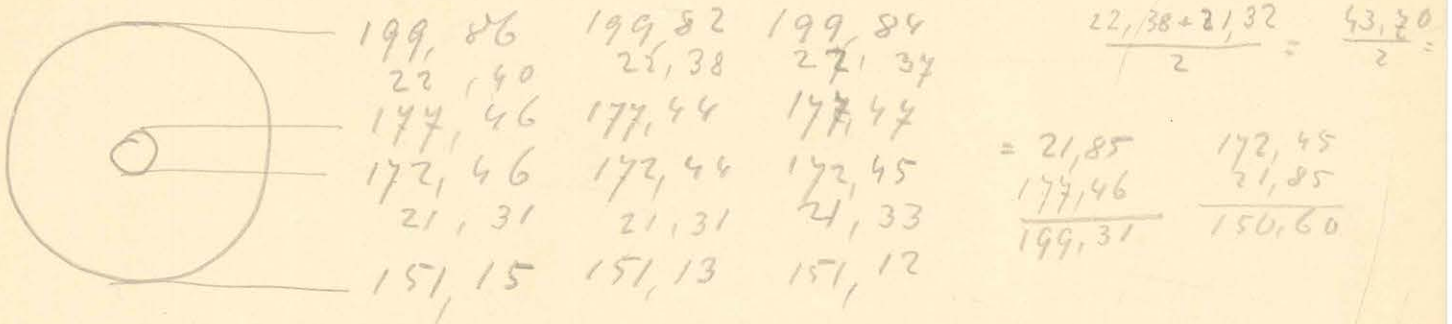 199,86 199,82 199,84
22,40 22,38 22,37
177,46 177,44 177,47
172,46 172,44 172,45
21,31 21,31 21,33
151,15 151,13 151,12
22,38+21,32 / 2 = 43,70 / 2 =
= 21,85
177,46
199,31
172,45
21,85
150,60